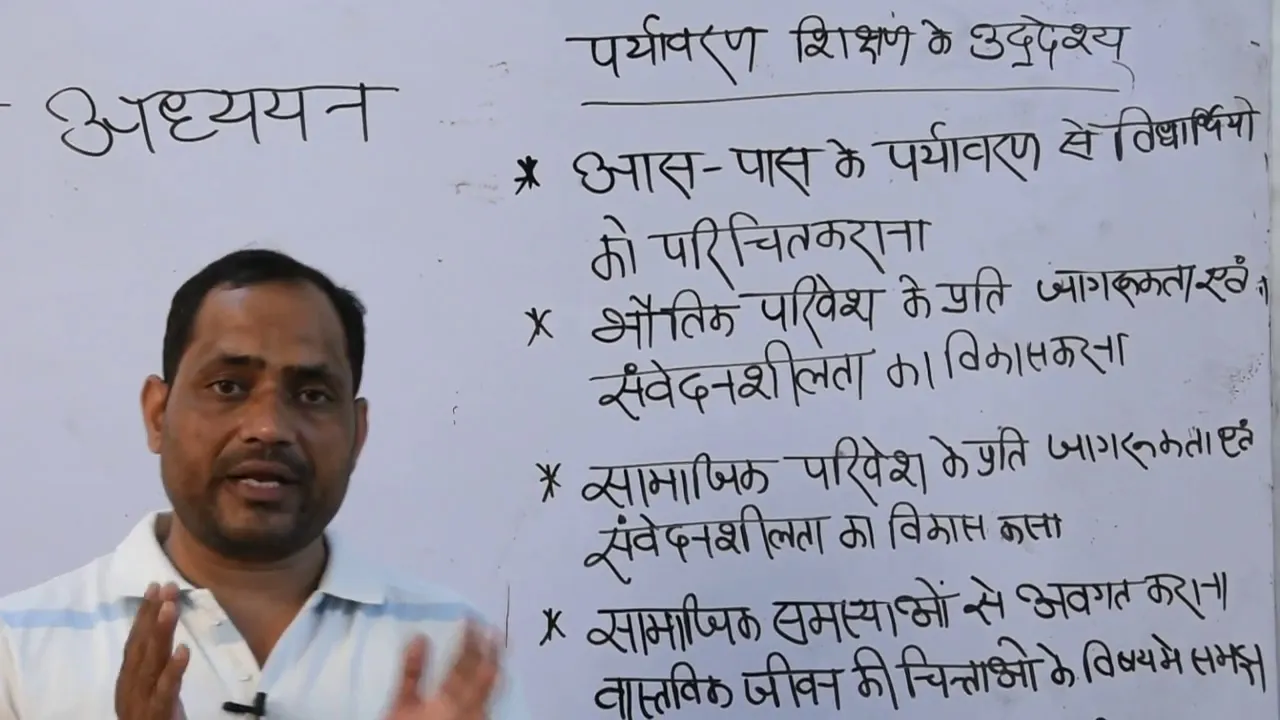 पर्यावरण शिक्षण के उद्देश्य
अध्ययन
* आस-पास के पर्यावरण से विद्यार्थियो
को परिचित कराना
* भौतिक परिवेश के प्रति जागरूकता एवं
संवेदनशीलता का विकास करना
* सामाजिक परिवेश के प्रति जागरूकता एवं
संवेदनशीलता का विकास करना
* सामाजिक समस्याओं से अवगत कराना
वास्तविक जीवन की चिन्ताओ के विषय मे समझ